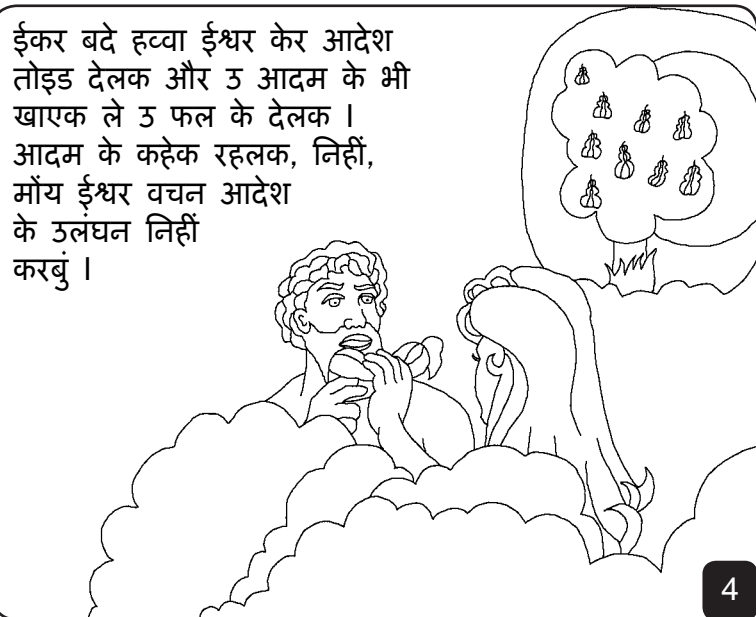 ईकर बदे हव्वा ईश्वर केर आदेश
तोइड देलक और उ आदम के भी
खाएक ले उ फल के देलक ।
आदम के कहेक रहलक, निहीं,
मोंय ईश्वर वचन आदेश
के उलंघन निहीं
करबुं ।
4